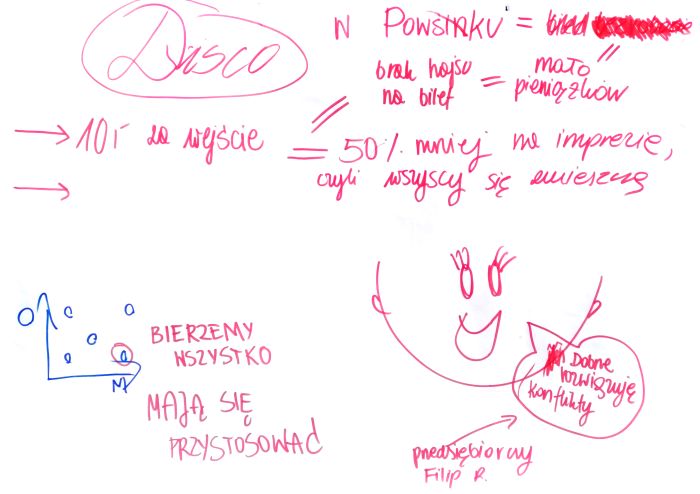 Disco
N Powstńku = bied
brak hajsu na bilet = mało pieniążków
10 zł za wejście = 50% mniej na imprezie,
czyli wszyscy się zmieszczą
O
M
BIERZEMY
WSZYSTKO
MAJĄ SIĘ
PRZYSTOSOWAĆ
Dobre
rozwiązuję
konflikty
przedsiębiorczy
Filip R.